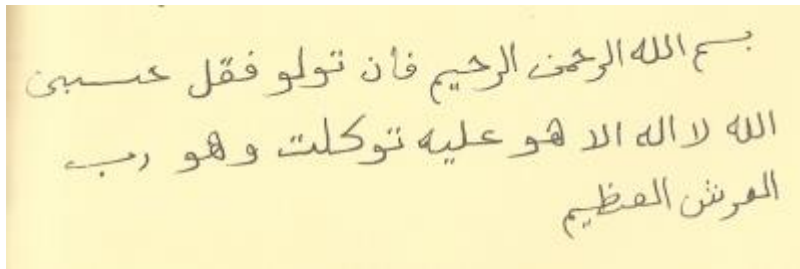 بسم الله الرحمن الرحيم فان تولو فقل حسبي
الله لا اله الا هو عليه توكلت وهو رب
العرش العظيم